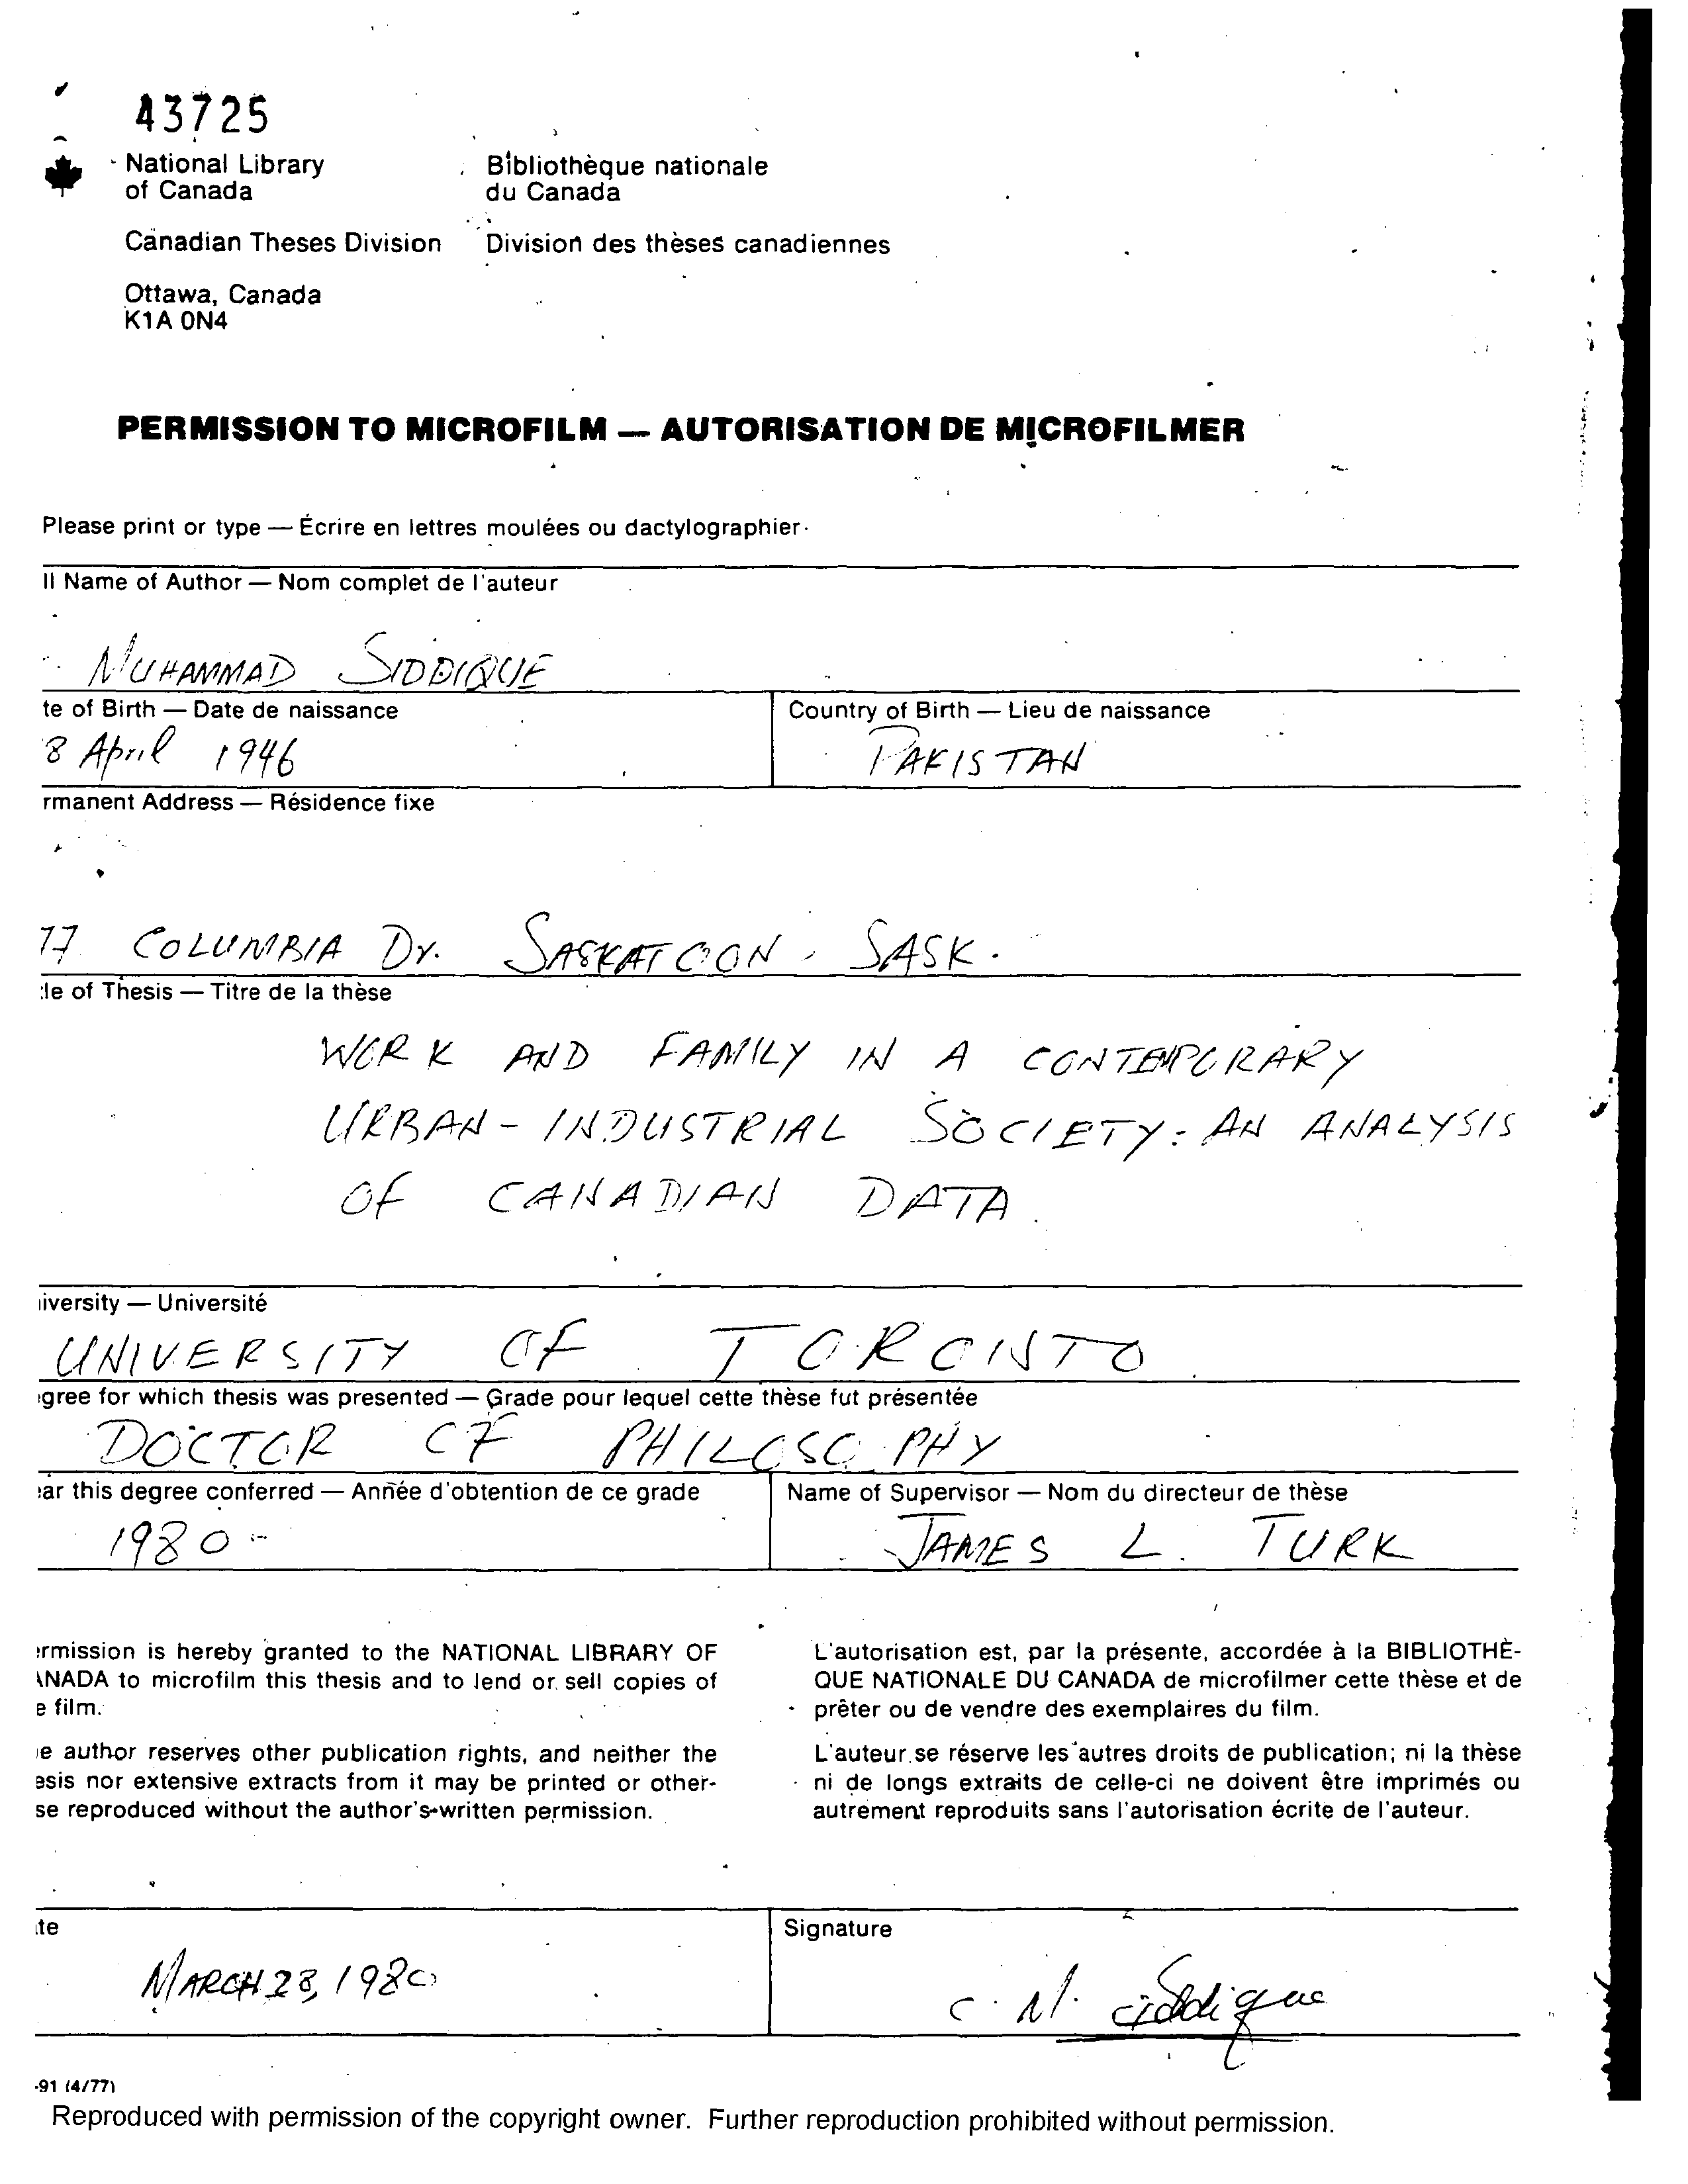 43725
National Library of Canada
Bibliothèque nationale du Canada
Canadian Theses Division
Division des thèses canadiennes
Ottawa, Canada
K1A 0N4
PERMISSION TO MICROFILM — AUTORISATION DE MICROFILMER
Please print or type — Écrire en lettres moulées ou dactylographier
ll Name of Author — Nom complet de l'auteur
MUHAMMAD SIDDIQUE
te of Birth — Date de naissance
Country of Birth — Lieu de naissance
8 April 1946
PAKISTAN
rmanent Address — Résidence fixe
77 COLUMBIA Dr. SASKATOON, SASK.
le of Thesis — Titre de la thèse
WORK AND FAMILY IN A CONTEMPORARY
URBAN-INDUSTRIAL SOCIETY: AN ANALYSIS
OF CANADIAN DATA.
iversity — Université
UNIVERSITY OF TORONTO
gree for which thesis was presented — Grade pour lequel cette thèse fut présentée
DOCTOR OF PHILOSOPHY
ar this degree conferred — Année d'obtention de ce grade
Name of Supervisor — Nom du directeur de thèse
1980
JAMES L. TURK
rmission is hereby granted to the NATIONAL LIBRARY OF
ANADA to microfilm this thesis and to lend or sell copies of
e film.
e author reserves other publication rights, and neither the
esis nor extensive extracts from it may be printed or other-
se reproduced without the author's written permission.
L'autorisation est, par la présente, accordée à la BIBLIOTHÈ-
QUE NATIONALE DU CANADA de microfilmer cette thèse et de
prêter ou de vendre des exemplaires du film.
L'auteur se réserve les autres droits de publication; ni la thèse
ni de longs extraits de celle-ci ne doivent être imprimés ou
autrement reproduits sans l'autorisation écrite de l'auteur.
te
Signature
MARCH 28, 1980
C. M. Siddique
-91 (4/77)
Reproduced with permission of the copyright owner. Further reproduction prohibited without permission.